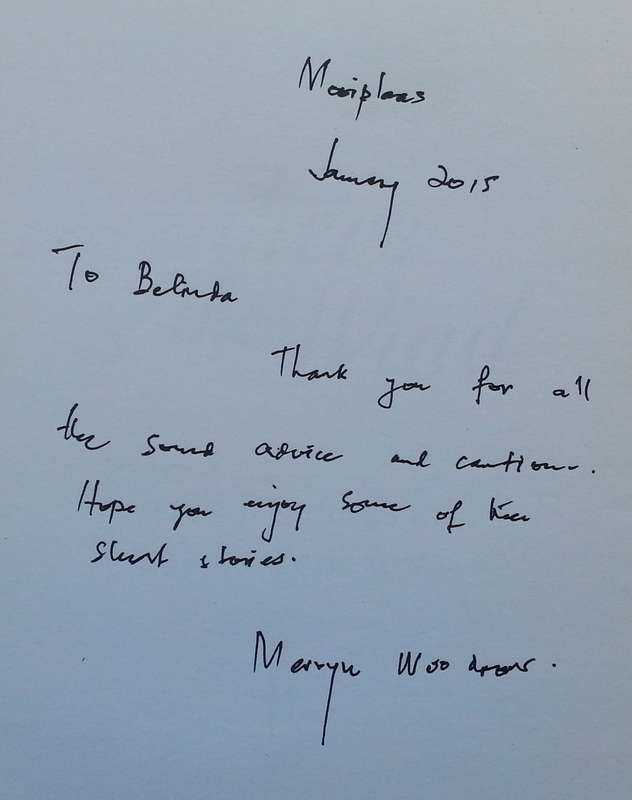 Mooiplaas
January 2015
To Belinda
Thank you for all
the sound advice and caution.
Hope you enjoy some of these
short stories.
Mervyn Woodrow.